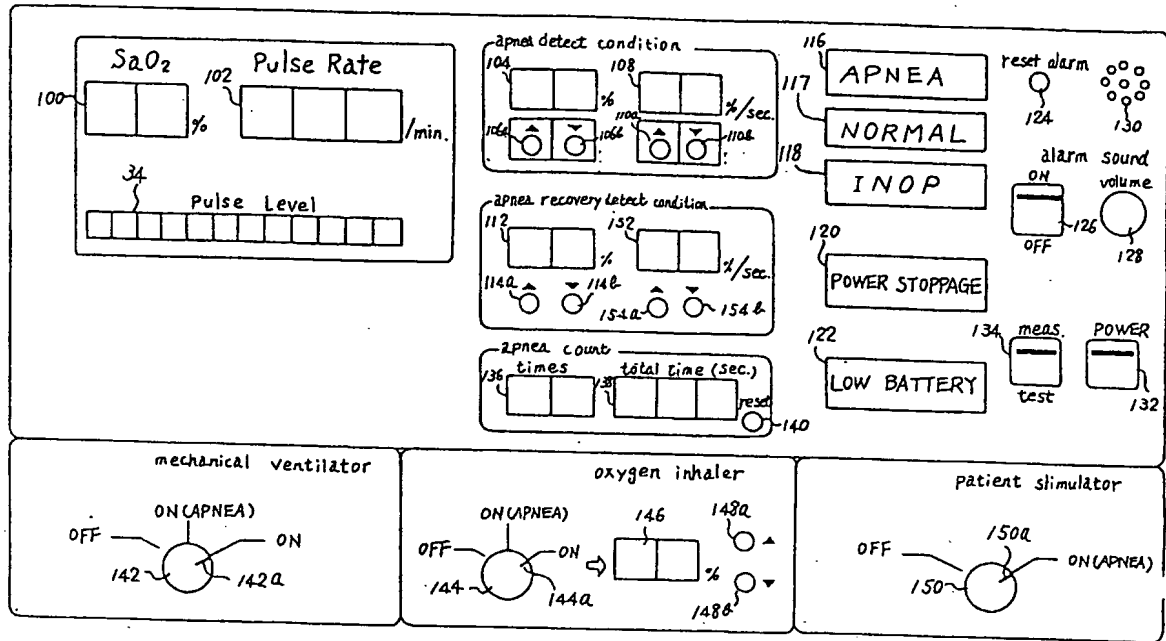 SaO₂
Pulse Rate
100
102
%
/min.
34
Pulse Level
apnea detect condition
104
108
%
%/sec.
106a
106b
110a
110b
apnea recovery detect condition
112
152
%
%/sec.
114a
114b
154a
154b
apnea count
times
total time (sec.)
136
138
reset
140
116
APNEA
117
NORMAL
118
INOP
120
POWER STOPPAGE
122
LOW BATTERY
reset alarm
124
130
alarm sound
ON
volume
126
OFF
128
134
meas.
POWER
test
132
mechanical ventilator
ON(APNEA)
OFF
ON
142
142a
oxygen inhaler
ON(APNEA)
OFF
ON
144
144a
146
%
148a
148b
patient stimulator
OFF
150a
ON(APNEA)
150